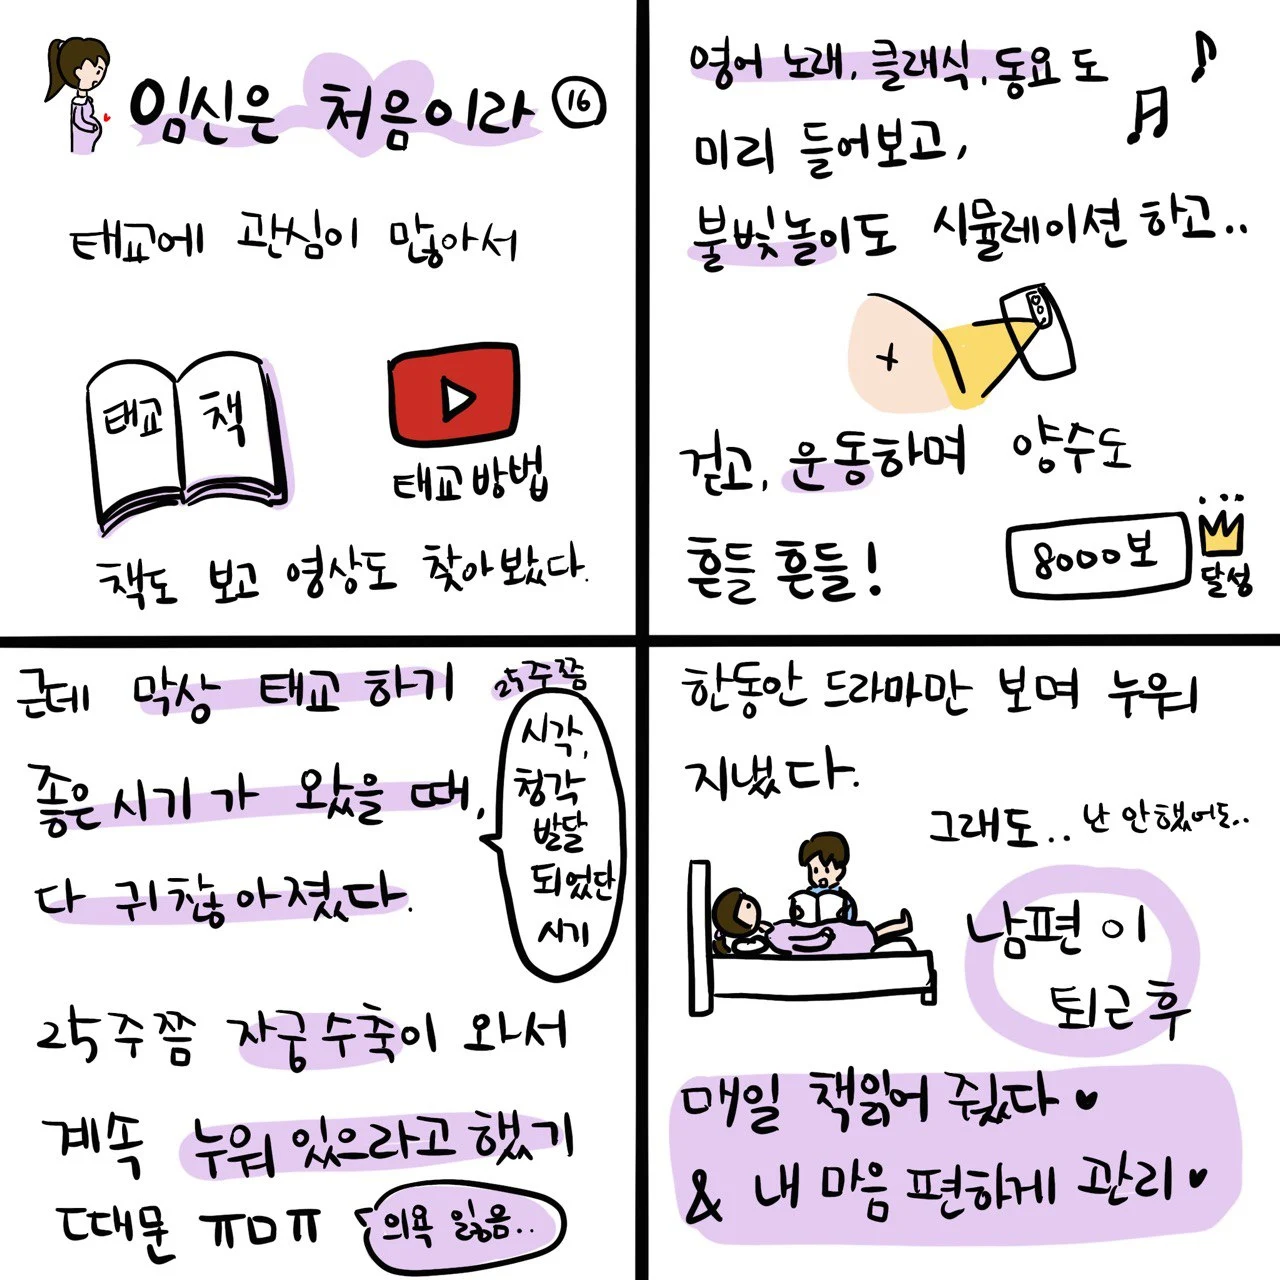 임신은 처음이라 16
태교에 관심이 많아서
태교 책
태교방법
책도 보고 영상도 찾아봤다.
영어 노래, 클래식, 동요도
미리 들어보고,
불빛놀이도 시뮬레이션 하고..
걷고, 운동하며 양수도
흔들 흔들!
8000보
달성
근데 막상 태교 하기
좋은시기가 왔을 때,
다 귀찮아졌다.
25주쯤
시각,
청각
발달
되었단
시기
25주쯤 자궁수축이 와서
계속 누워있으라고 했기
때문 ㅠㅁㅠ
의욕 잃음..
한동안 드라마만 보며 누워
지냈다.
그래도.. 난 안했어도..
남편이
퇴근 후
매일 책읽어 줬다 ♥
& 내 마음 편하게 관리 ♥